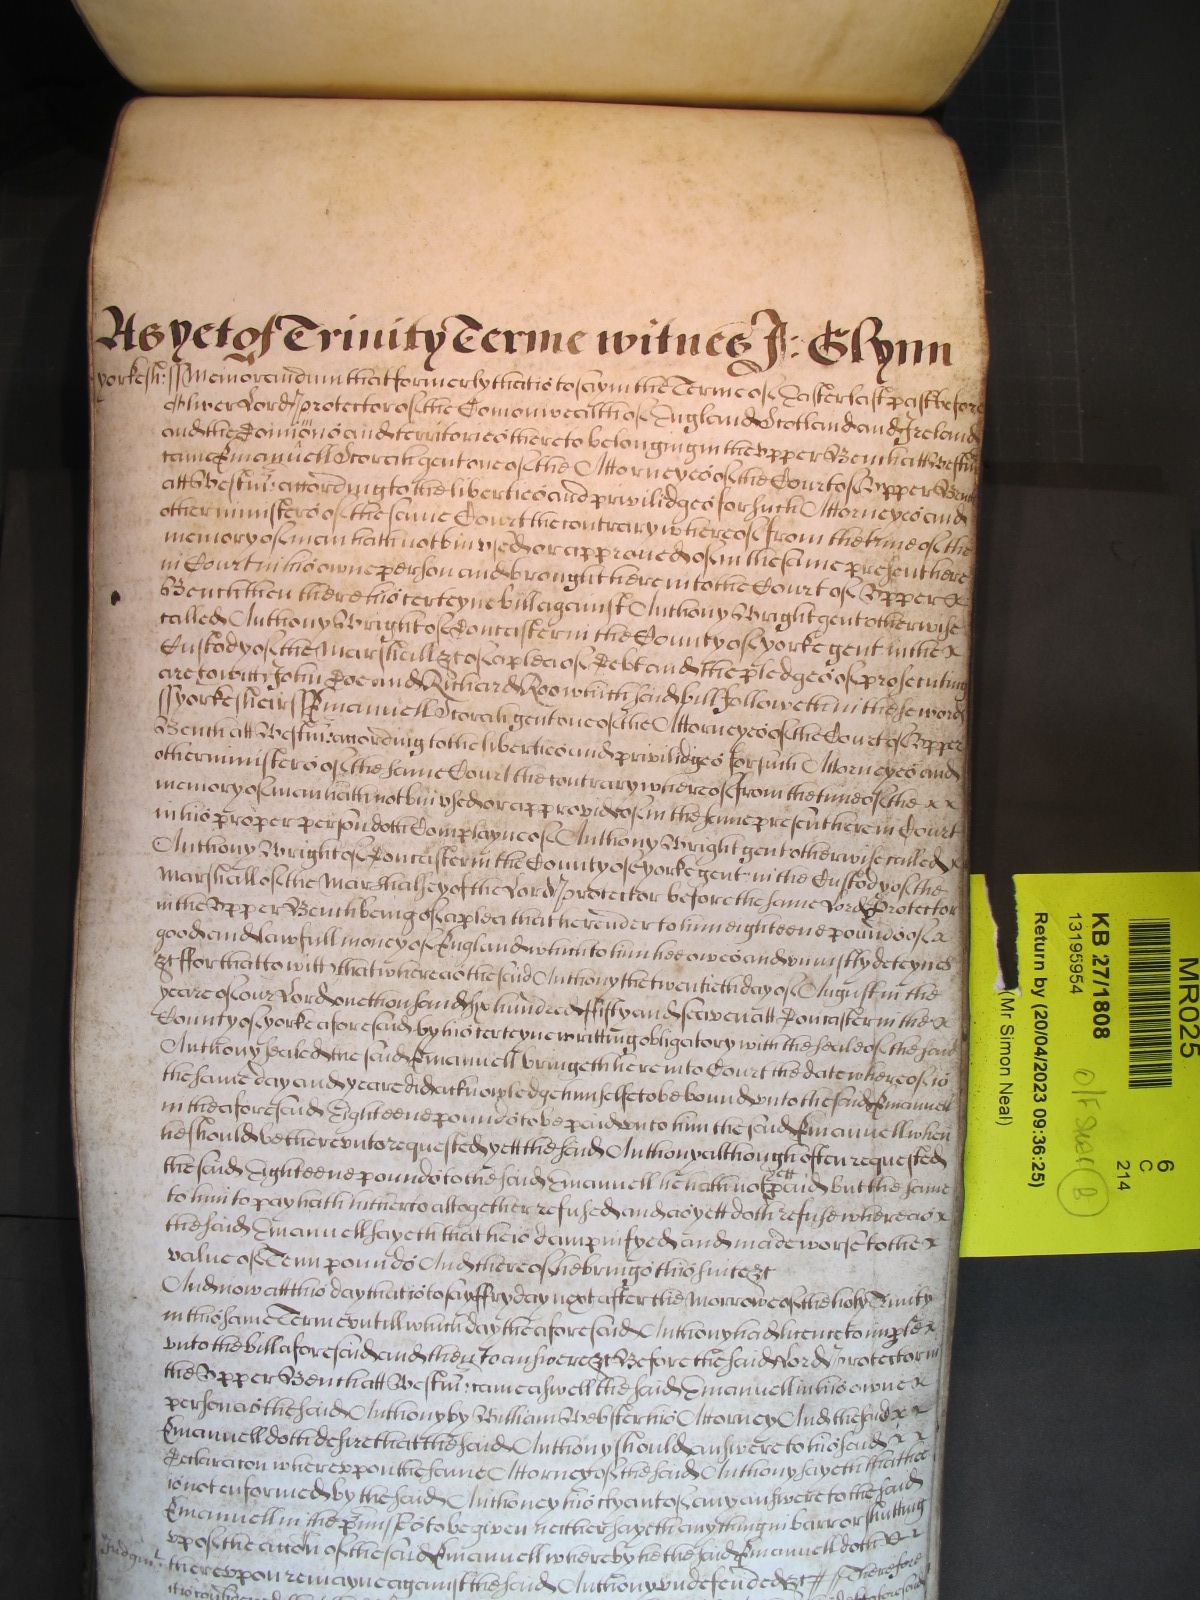 As yet of Trinity Terme witnes J: Glynn
yorkesh: ss Memorandum that formerly that is to say in the Terme of Easter last past before
Oliver Lord Protector of the Comonwealth of England Scotland and Ireland
and the Dominions and territories thereto belonging in the vpper Bench att Westm
came Emanuell gent one of the Attorneyes of the Court of Vpper Bench
att Westm: according to the liberties and priviledges for such Attorneyes and
other ministers of the same Court the contrary whereof from the tyme of the
memory of man hath not bin vsed or approued of in the same present here
in Court in his owne person and brought here into the Court of Vpper x
Bench then there his certeyne bill against Anthony Wright gent otherwise
called Anthony Wright of Doncaster in the County of yorke gent in the x
Custody of the Marshall &c of a plea of Debt and the pledges of prosecuting
are to witt John Doe and Richard Roo which said bill followeth in these words
ss yorkesheir ss Emanuell gent one of the Attorneyes of the Court of Vpper
Bench att Westm: according to the liberties and priviledges for such Attorneyes and
other ministers of the same Court the contrary whereof from the tyme of the x x
memory of man hath not bin vsed or approved of in the same present here in Court
in his proper person doth Complayne of Anthony Wright gent otherwise called x
Anthony Wright of Doncaster in the County of yorke gent in the Custody of the
Marshall of the Marshalsey of the Lord Protector before the same Lord Protector
in the Vpper Bench being of a plea that he render to him eighteene pounds of x
good and lawfull money of England which to him hee owes and vniustly deteynes
&c ffor that to witt that whereas the said Anthony the twentieth day of August in the
yeare of our Lord one thousand six hundred ffifty and seaven att Doncaster in the x
County of yorke aforesaid by his certeyne writting obligatory with the seale of the said
Anthony sealed the said Emanuell bringeth here into Court the date whereof is
the same day and yeare did acknowledge himselfe to be bound vnto the said Emanuell
in the aforesaid Eighteene pounds to be paid vnto him the said Emanuell when
he should be therevnto requested yett the said Anthony although often requested
the said Eighteene pounds to the said Emanuell he hath not yett paid but the same
to him to pay hath hitherto altogether refused and as yett doth refuse whereas x
the said Emanuell sayeth that he is dampnifyed and made worse to the x
value of Tenn pounds And thereof he brings this suite &c
And now att this day that is to say ffryday next after the Morrow of the holy Trinity
in this same Terme vntill which day the aforesaid Anthony had licence to imple x
vnto the bill aforesaid and then to answere &c Before the said Lord Protector in
the Vpper Bench att Westm: came aswell the said Emanuell in his owne x
person as the said Anthony by William Webster his Attorney And the said x x
Emanuell doth desire that the said Anthony should answere to his said x x
Declaracon wherevpon the same Attorney of the said Anthony sayeth that hee
is not enformed by the said Anthoney his clyant of any answere to the said
Emanuell in the pmisses to be given neither sayeth any thing in barr or shutting
vp of the accon of the said Emanuell whereby he the said Emanuell doth x
Judgmt: therevpon remayne against the said Anthony vndefended &c Therefore
it is considered
MR025
6
C
214
KB 27/1808
13195954
Return by (20/04/2023 09:36:25)
(Mr Simon Neal)